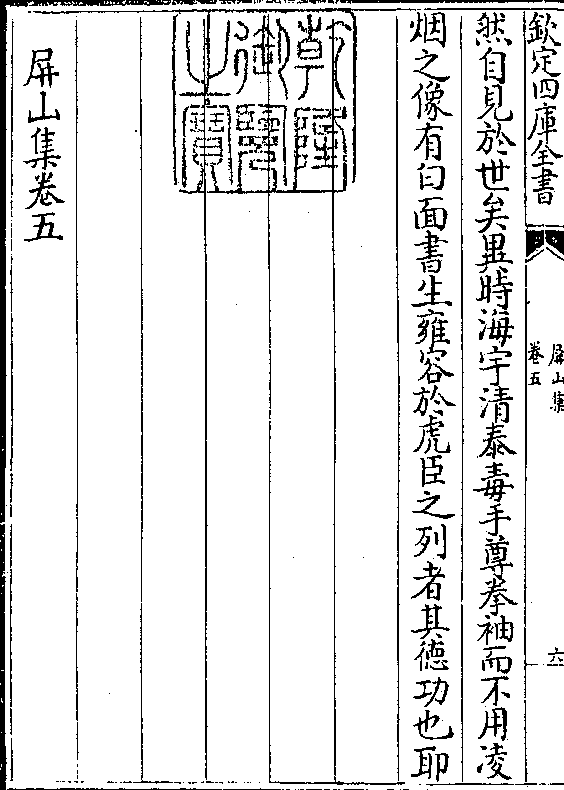 欽定四庫全書
屏山集
卷五
六
然自見於世矣異時海宇清泰毒手尊拳袖而不用凌
烟之像有白面書生雍容於虎臣之列者其徳功也耶
乾隆
御覽
之寶
屏山集卷五